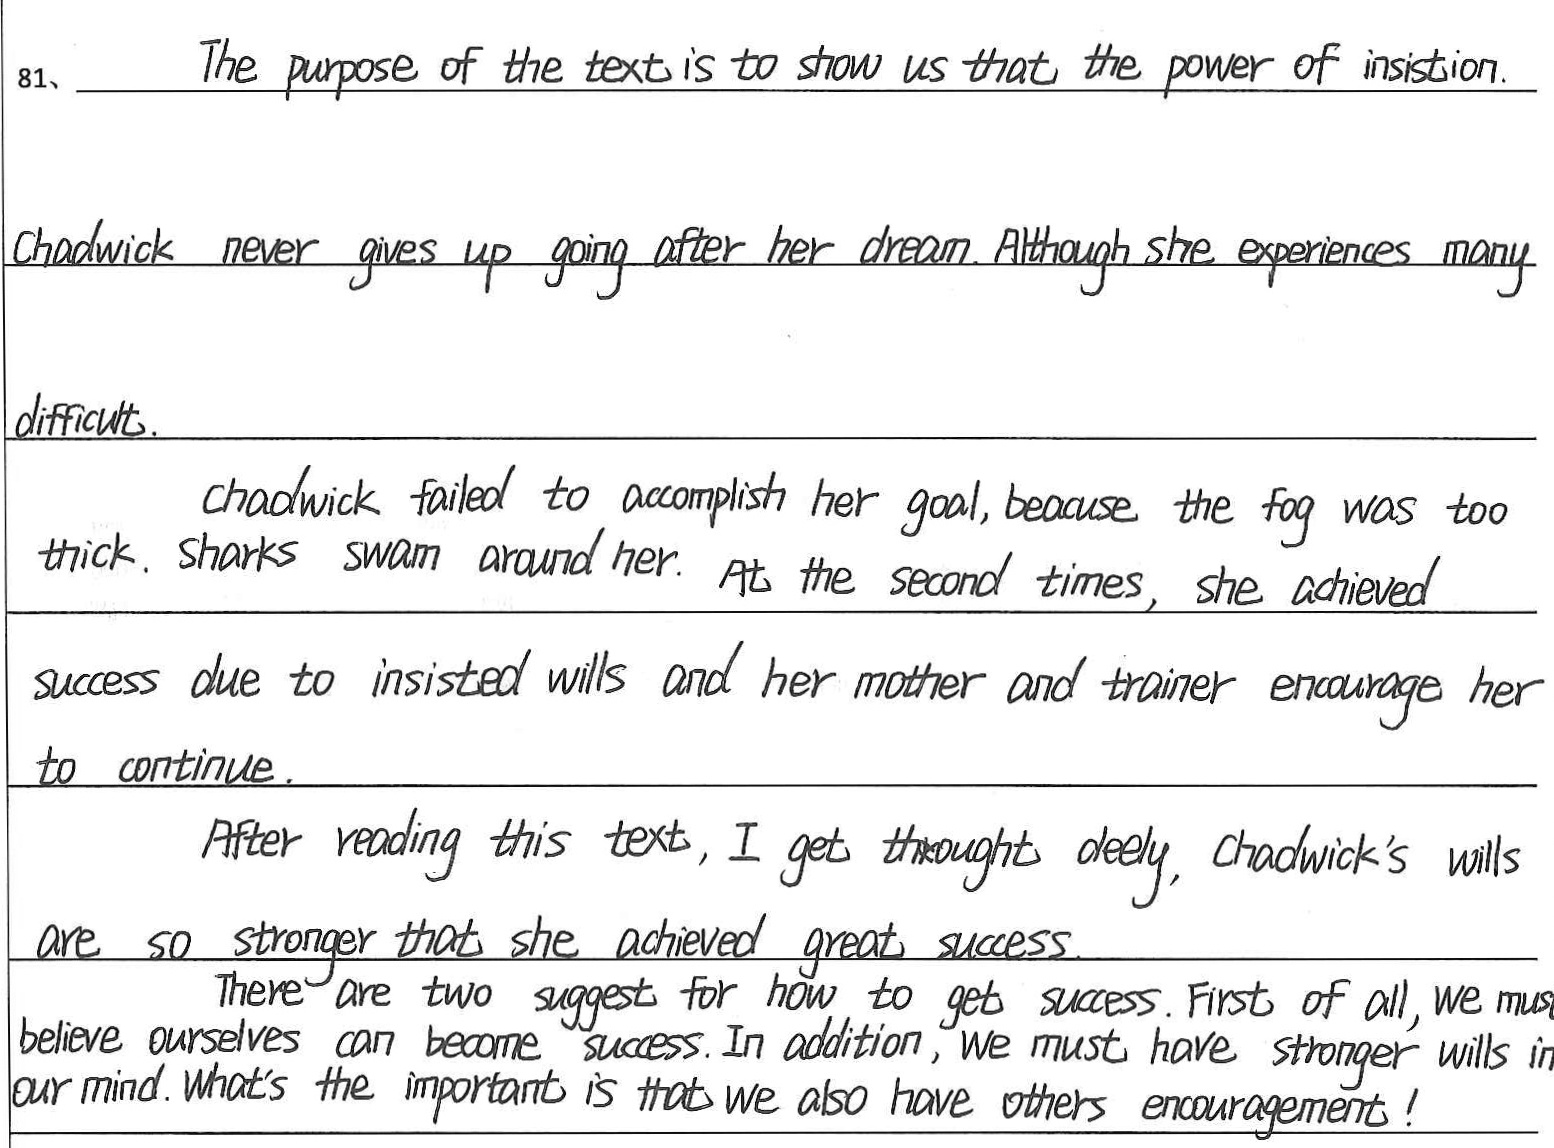 81、 The purpose of the text is to show us that the power of insistion.
Chadwick never gives up going after her dream. Although she experiences many
difficult.
Chadwick failed to accomplish her goal, beacuse the fog was too
thick. Sharks swam around her. At the second times, she achieved
success due to insisted wills and her mother and trainer encourage her
to continue.
After reading this text, I get throught deely, Chadwick's wills
are so stronger that she achieved great success.
There are two suggest for how to get success. First of all, we must
believe ourselves can become success. In addition, we must have stronger wills in
our mind. What's the important is that we also have others encouragement!